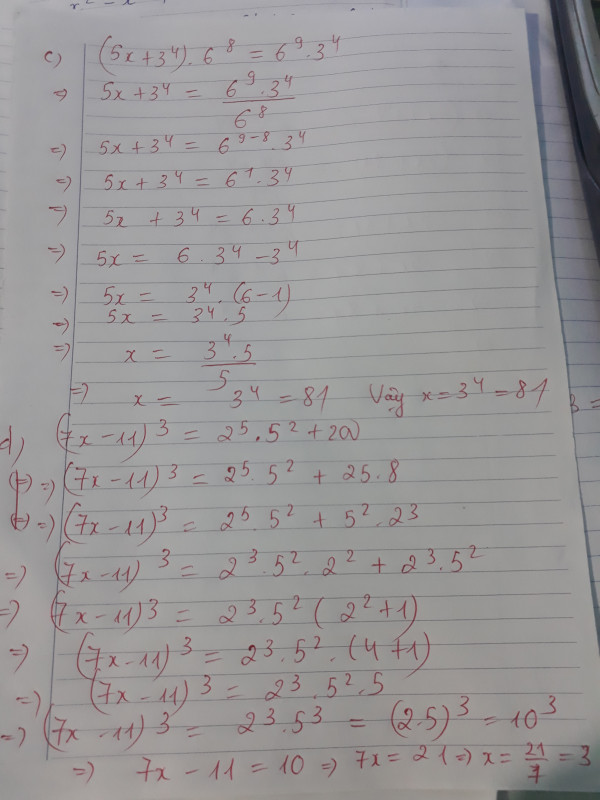 c) (5x+3⁴).6⁸ = 6⁹.3⁴
=> 5x+3⁴ = 6⁹.3⁴/6⁸
=> 5x+3⁴ = 6⁹⁻⁸.3⁴
=> 5x+3⁴ = 6¹.3⁴
=> 5x + 3⁴ = 6.3⁴
=> 5x = 6.3⁴-3⁴
=> 5x = 3⁴.(6-1)
=> 5x = 3⁴.5
=> x = 3⁴.5/5
=> x = 3⁴ = 81 Vậy x=3⁴=81
3=
d) (7x-11)³ = 2⁵.5²+200
(=) => (7x-11)³ = 2⁵.5² + 25.8
(=) => (7x-11)³ = 2⁵.5² + 5².2³
=> (7x-11)³ = 2³.5².2² + 2³.5²
=> (7x-11)³ = 2³.5²(2²+1)
=> (7x-11)³ = 2³.5².(4+1)
=> (7x-11)³ = 2³.5².5
=> (7x-11)³ = 2³.5³ = (2.5)³ = 10³
=> 7x-11 = 10 => 7x = 21 => x = 21/7 = 3